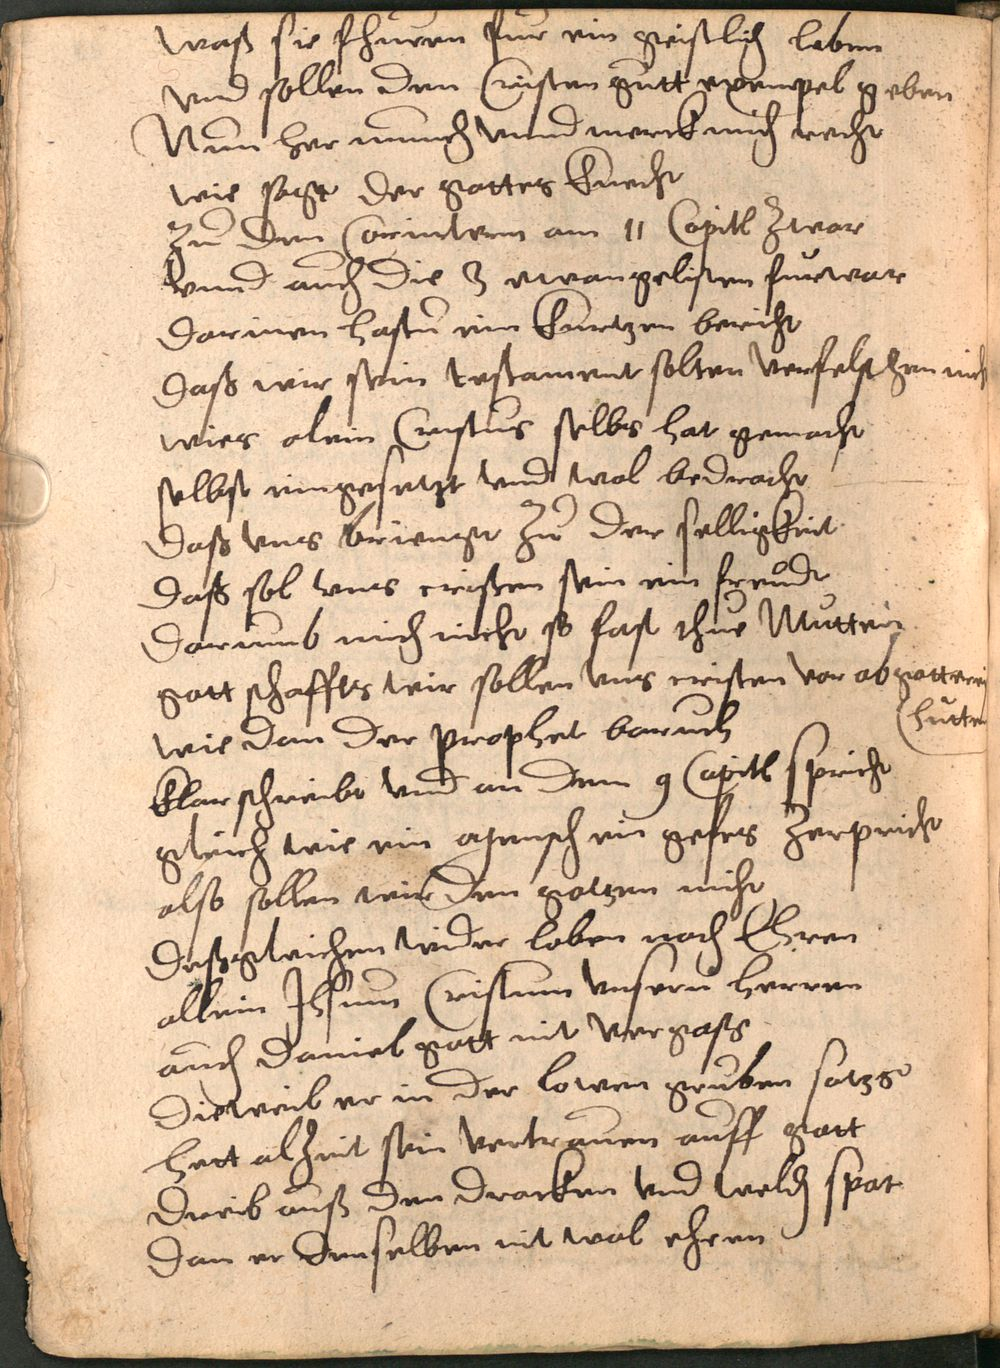 waß sie fhuren fur ein geistlich leben
vnd sollen den Cristen gutt exempel geben
Nun her munch vnnd merck mich recht
wie sagt der gottes knecht
Zu den Corintern am 11 Capitl zwar
vnnd auch die 3 ewangelisten furwar
darinen hastu ein kurtzen bericht
daß wir sein testament solten verfelschen nich
wies alein Cristus selbs hat gemacht
selbst eingesetzt vnd wol bedracht
daß vns brienget zu der selligkeit
daß sol vns cristen sein ein freudt
darumb mich nicht so fast thue
gott schaffts wir sollen vns cristen vor abgotterei
(hutten
wie dan der prophet baruch
klar schreibt vnd an dem 9 Capitl spricht
gleich wie ein mensch ein gefes zerpricht
also sollen wir den gotzen nicht
deßgleichen wider loben noch Ehren
allein Jhsum Cristum vnsern herren
auch daniel gott nit vergaß
dieweil er in der lowen gruben satzs
hett alzeit sein vertrauen auff gott
drieb auß den dracken vnd spot
dan er denselben nit wol ehren